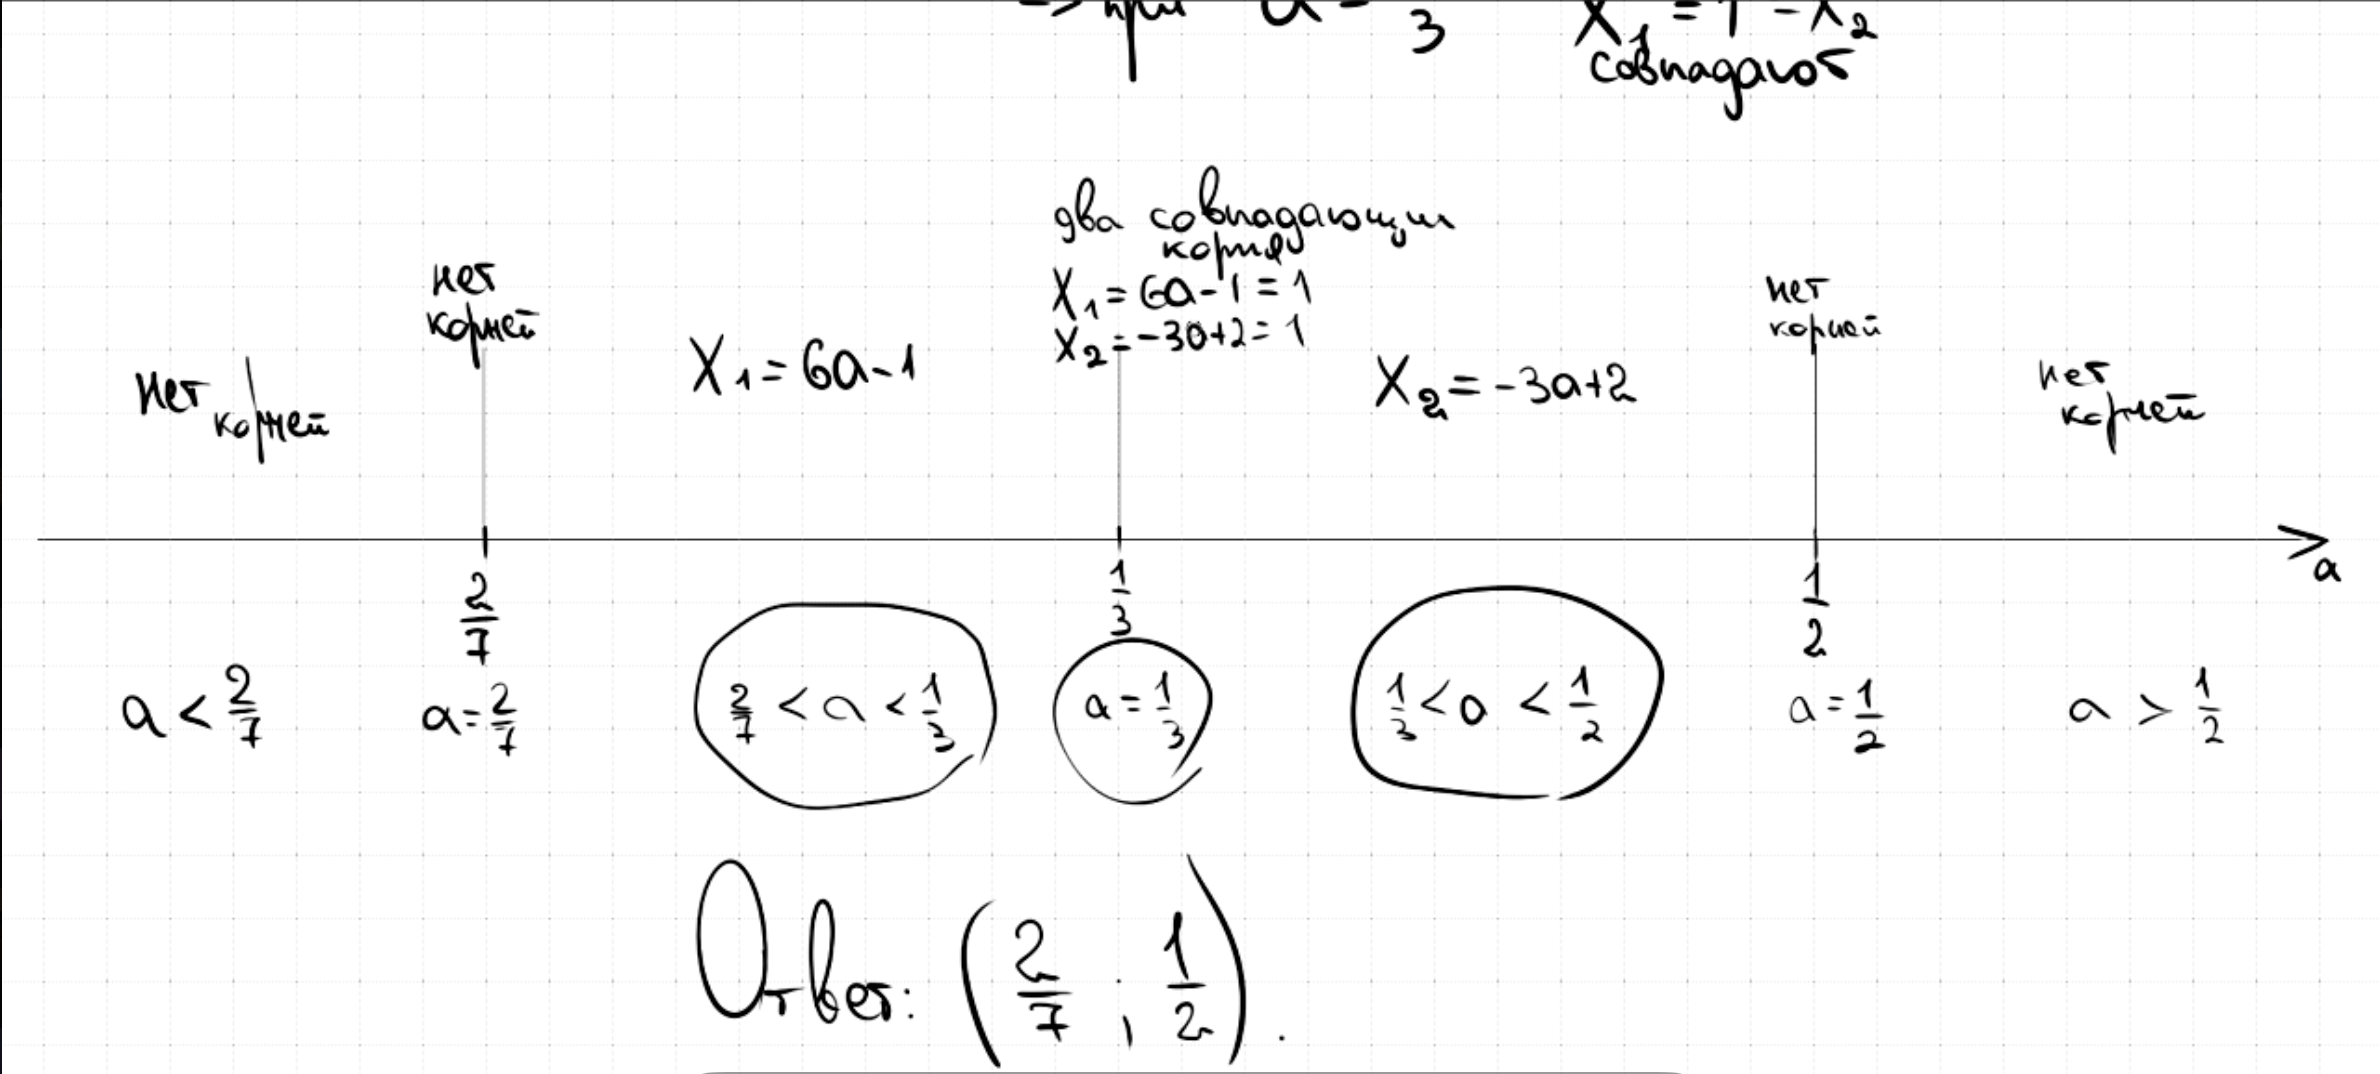 => при a = 3 x₁ = 1 = x₂
совпадают
два совпадающих
корня
x₁ = 6a-1 = 1
x₂ = -3a+2 = 1
нет
корней
нет
корней
нет
корней
x₁ = 6a-1
x₂ = -3a+2
нет
корней
a
2/7
1/3
1/2
a < 2/7
a = 2/7
2/7 < a < 1/3
a = 1/3
1/3 < a < 1/2
a = 1/2
a > 1/2
Ответ: (2/7 ; 1/2).